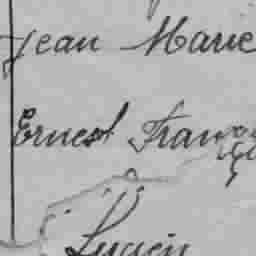 Jean Marie
Ernest Franço
Lucien